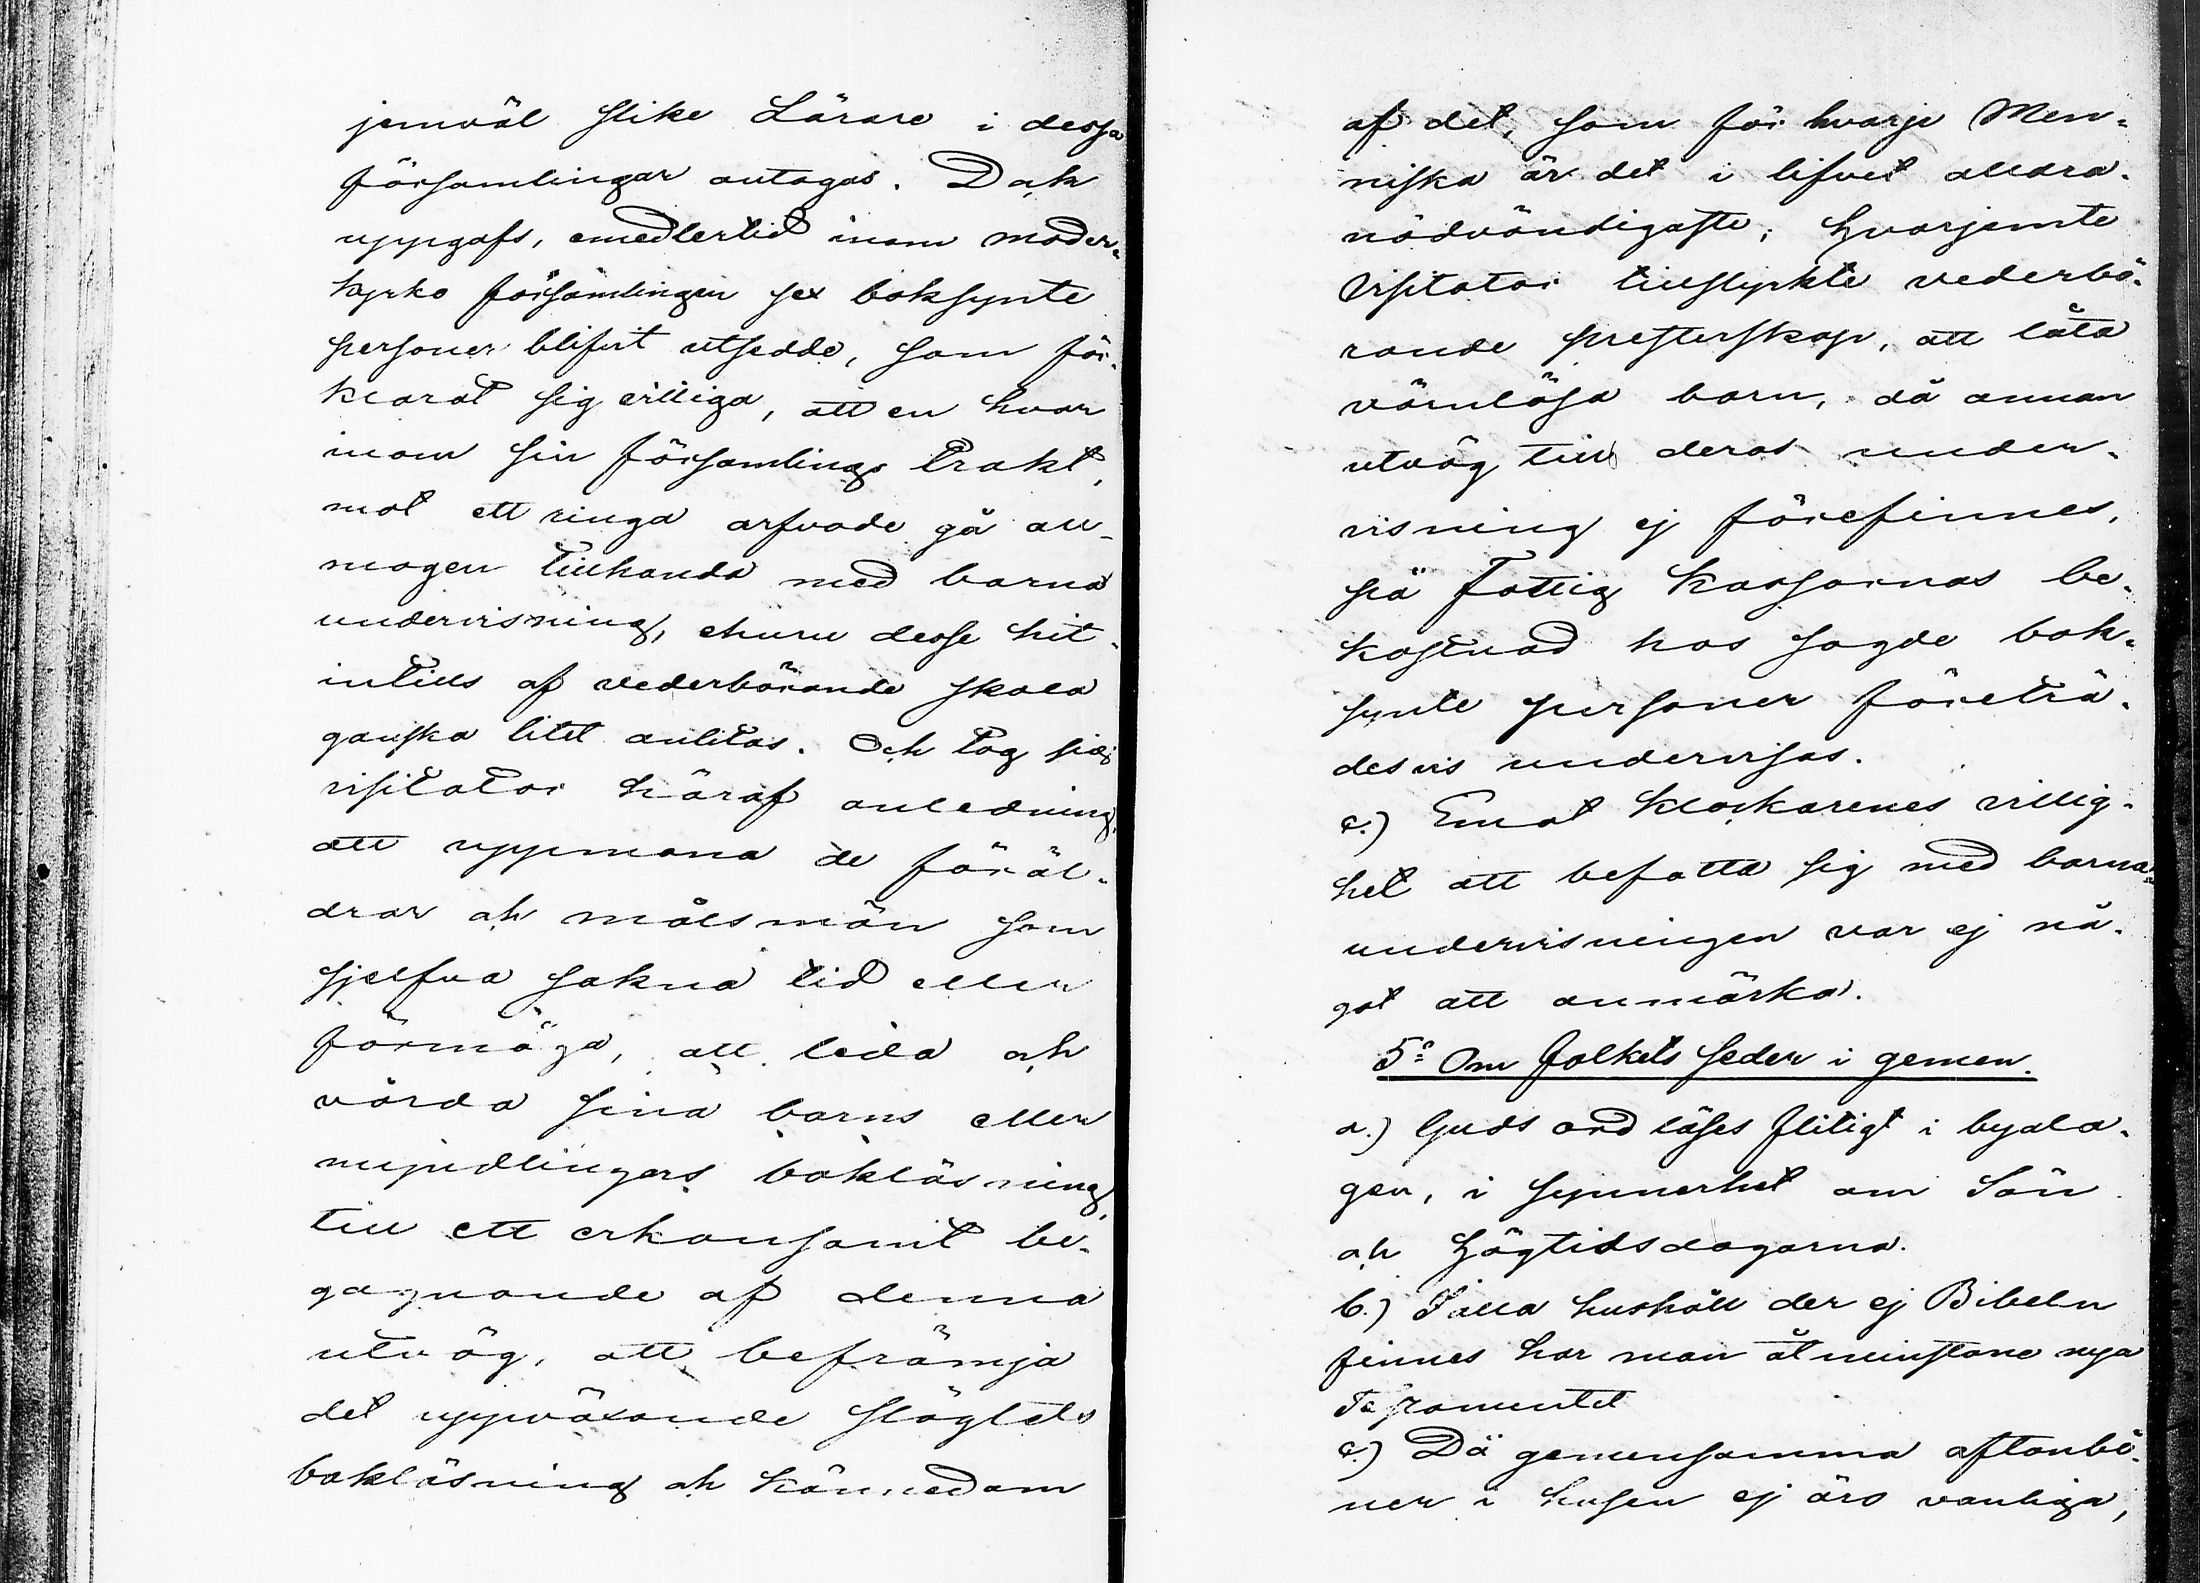 jemväl slike Lärare i dessa
församlingar antagas. Dock
uppgafs, emedlertid inom moder-
kyrko församlingen sex boksynte
personer blifvit utsedde, som för-
klarat sig villiga, att en hvar
inom sin församlings trakt,
mot ett ringa arfvode gå all-
mogen tillhanda med barna
undervisning, ehuru desse hit-
intills af vederbörande skola
ganska litet anlitas. Och tog sig
visitator häraf anledning,
att uppmana de föräl-
drar och målsmän som
sjelfva sakna tid eller
förmåga, att leda och
vårda sina barns eller
myndlingars bokläsning,
till ett erkansamt be-
gagnande af denna
utväg, att befrämja
det uppväxande slägtets
bokläsning och kännedom
af det, som för hvarje Men-
niska är det i lifvet alldra-
nödvändigaste; hvarjemte
Visitator tillstyrkte vederbö-
rande presterskap, att låta
värnlösa barn, då annan
utväg till deras under-
visning ej förefinnes,
på Fattig kassornas be-
kostnad hos sagde bok-
synte personer företrä-
desvis undervisas.
c.) Emot klockarenes villig-
het att befatta sig med barna-
undervisningen var ej nå-
got att anmärka.
5º Om folkets seder i gemen.
a.) Guds ord läses flitigt i byala-
gen, i synnerhet om Sön
och Högtidsdagarna.
b.) I alla hushåll der ej Bibeln
finnes har man åtminstone nya
Testamentet
c.) Då gemensamma aftonbö-
ner i husen ej äro vanliga,